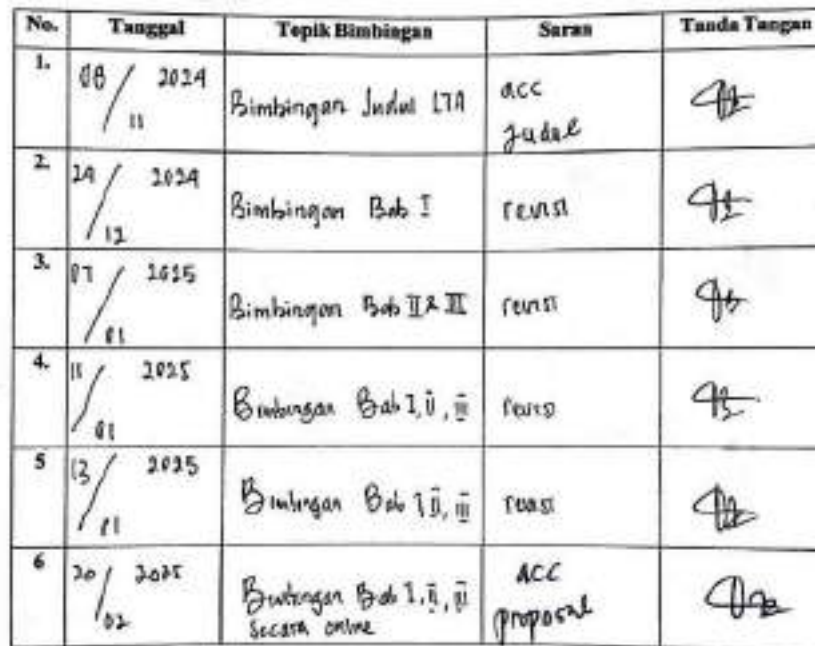 No. Tanggal Topik Bimbingan Saran Tanda Tangan
1. 08/11 2024 Bimbingan Judul LTA acc judul
2. 24/12 2024 Bimbingan Bab I revisi
3. 07/01 2025 Bimbingan Bab II & III revisi
4. 11/01 2025 Bimbingan Bab I, II, III revisi
5 13/01 2025 Bimbingan Bab I, II, III revisi
6 20/02 2025 Bimbingan Bab I, II, III acc
secara online proposal